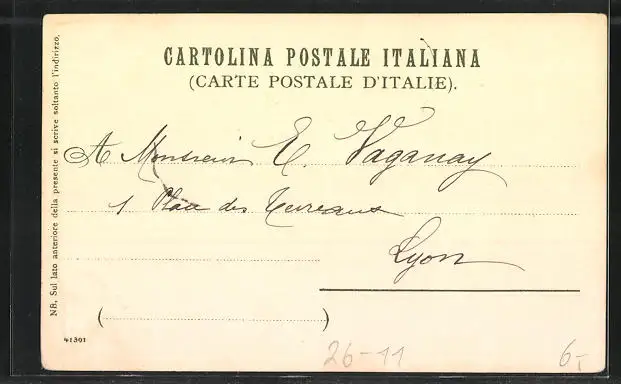 CARTOLINA POSTALE ITALIANA
(CARTE POSTALE D'ITALIE).
A Monsieur E. Vaganay
1 Place des Terreaux
Lyon
NB. Sul lato anteriore della presente si scrive soltanto l'indirizzo.
41391
26-11
6,-